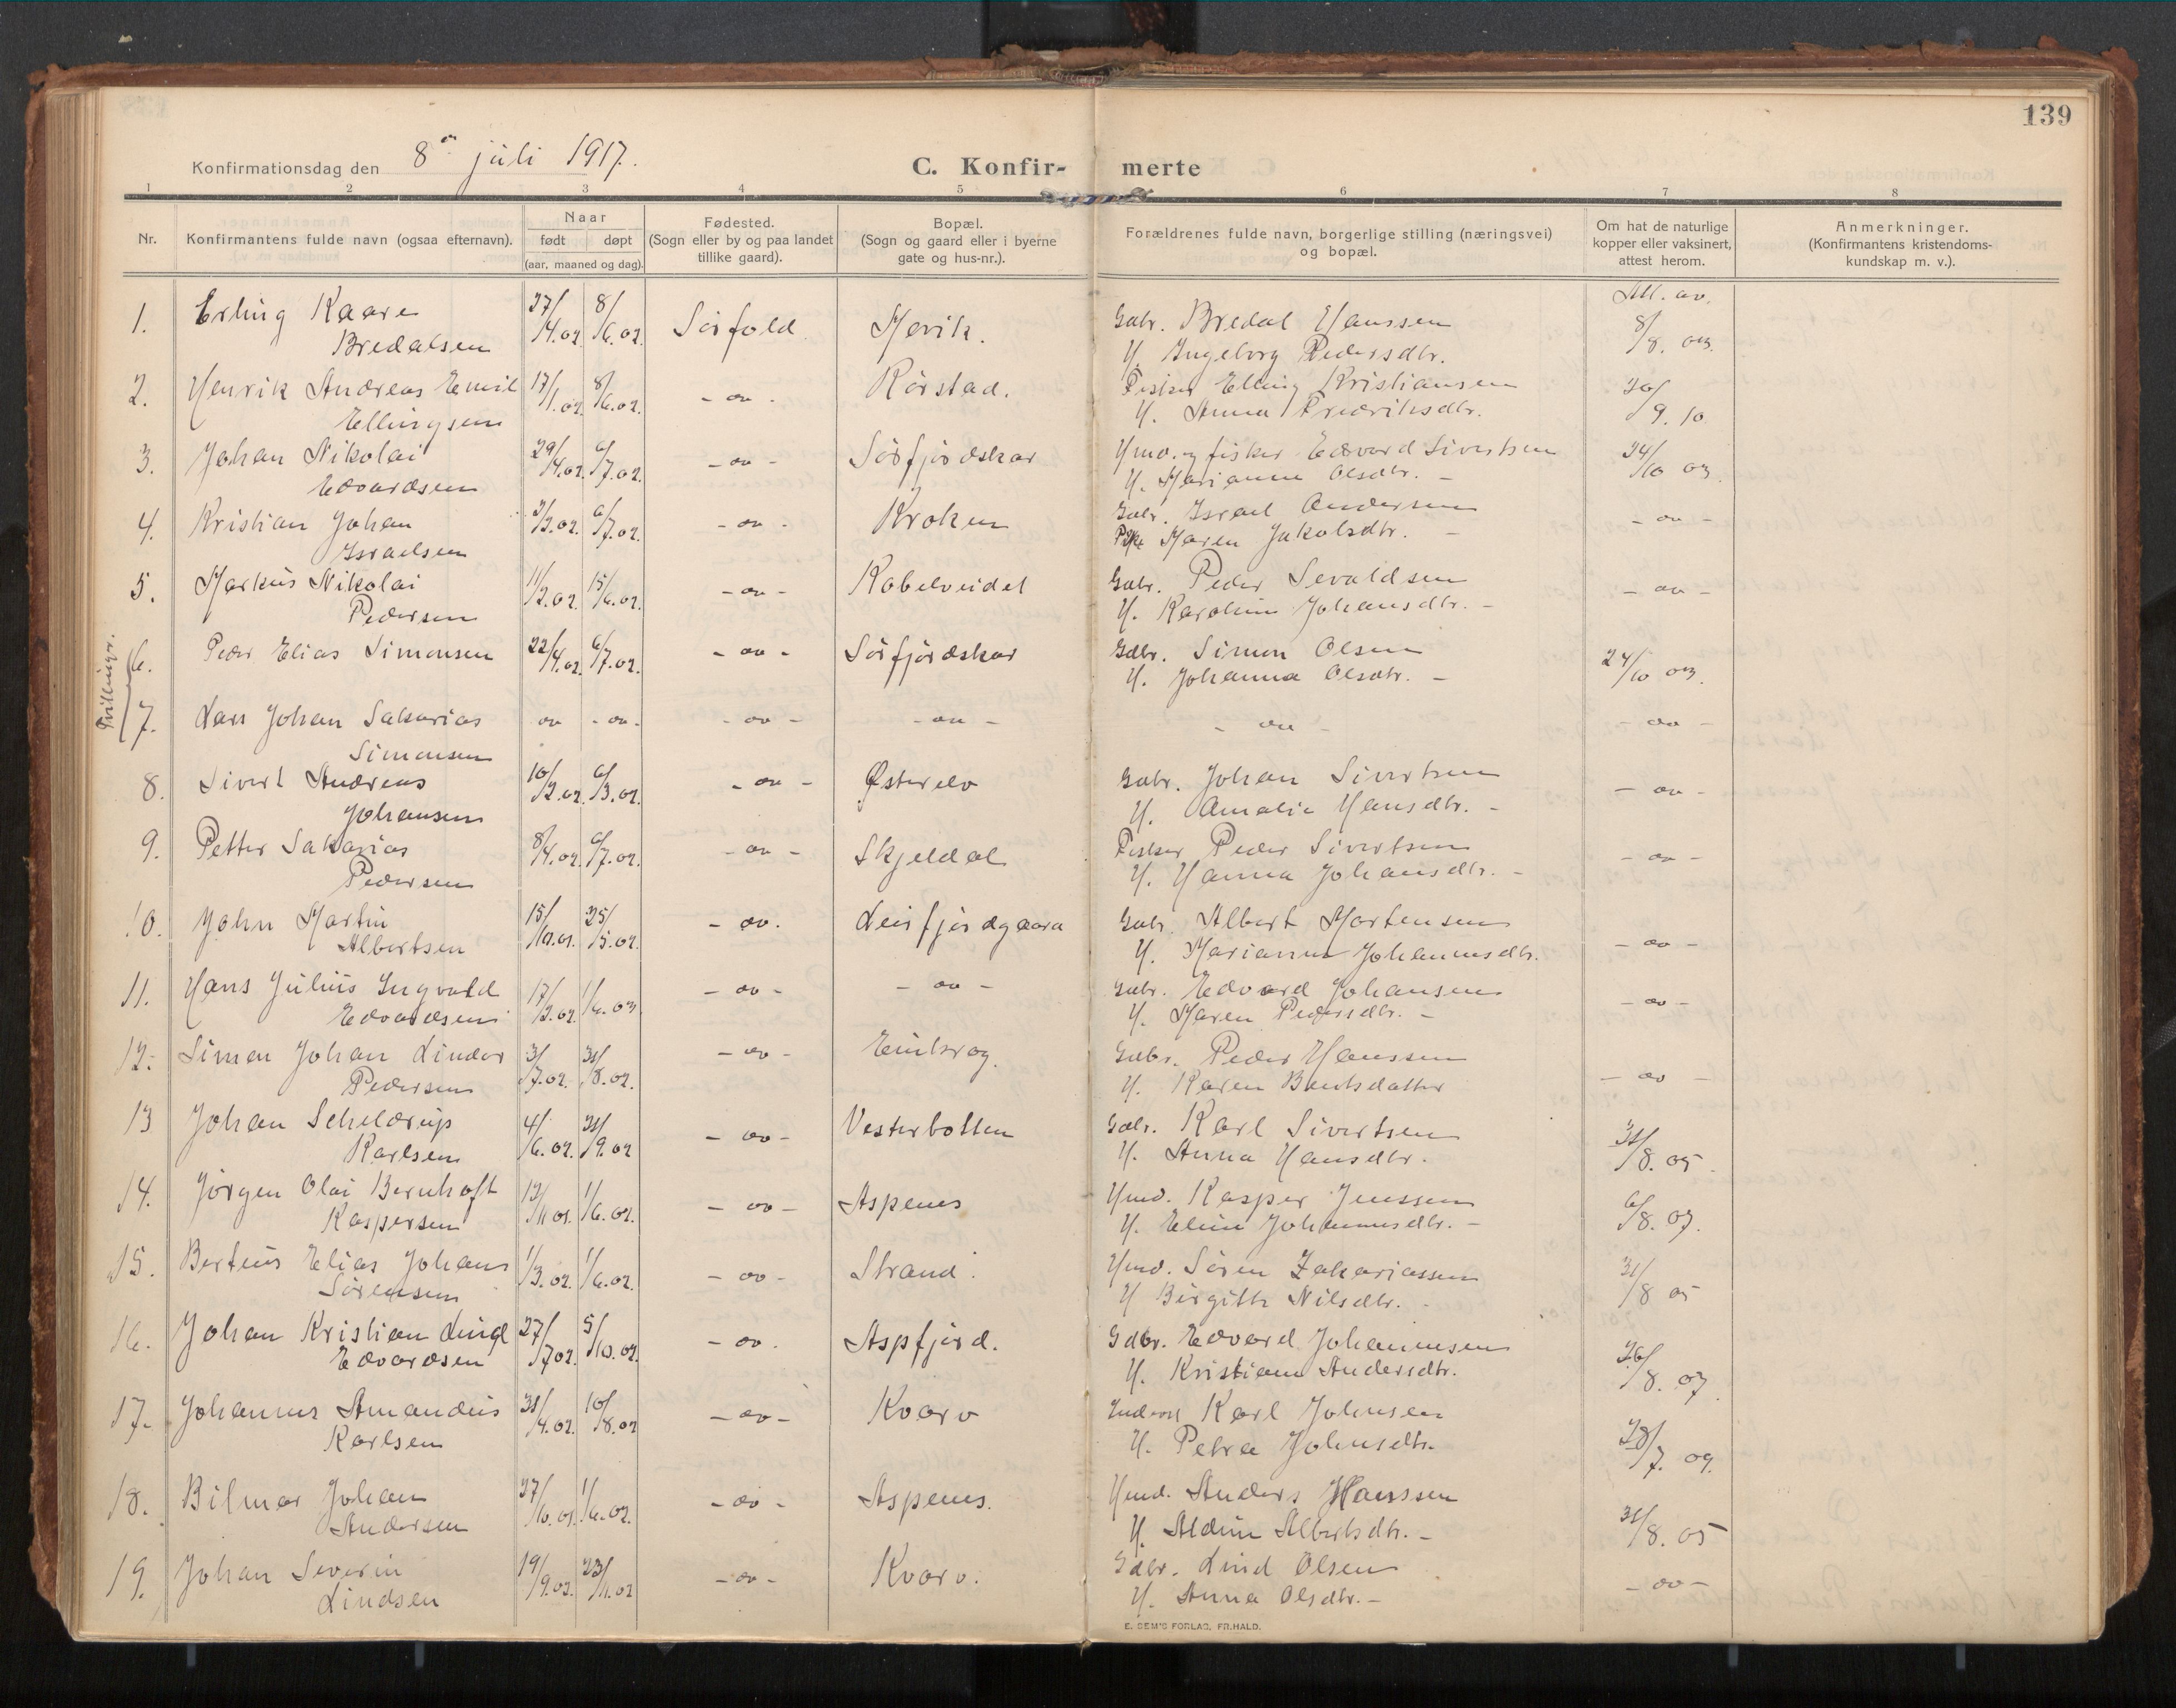 139
Konfirmationsdag den 8de juli 1917.
C. Konfir- merte
1 2 3 4 5 6 7 8
Nr. Konfirmantens fulde navn (ogsaa efternavn). Naar født døpt (aar, maaned og dag). Fødested. (Sogn eller by og paa landet tillike gaard). Bopæl. (Sogn og gaard eller i byerne gate og hus-nr.). Forældrenes fulde navn, borgerlige stilling (næringsvei) og bopæl. Om hat de naturlige kopper eller vaksinert, attest herom. Anmerkninger. (Konfirmantens kristendoms- kundskap m. v.).
1. Erling Kaare 27/4.02. 8/6.02. Sørfold Mørik. Gdbr. Bredal Hanssen Att. av. 8/8. 03.
Bredalsen H. Ingeborg Pedersdtr.
2. Henrik Andreas Emil 17/1.02. 8/6.02. - " - Rørstad. Fisker Elling Kristiansen 26/9. 10
Ellingsen H. Anna Fredriksdtr.
3. Johan Nikolai 29/4.02. 6/7.02. - " - Sørfjordskar Hmd. og fisker Edvard Sivertsen 24/10 03.
Edvardsen H. Marianne Olsdtr. -
4. Kristian Johan 3/3.02. 6/7.02. - " - Kroken Gdbr. Israel Andersen - " -
Israelsen Maren Jakobsdtr. -
5. Markus Nikolai 11/2.02. 15/6.02. - " - Kobelveidet Gdbr. Peder Sevaldsen - " -
Pedersen H. Karoline Johansdtr. -
Tvillinger.
6. Peder Elias Simonsen 22/4.02. 6/7.02. - " - Sørfjordskar Gdbr. Simon Olsen 24/10 03.
H. Johanna Olsdtr. -
7. Lars Johan Sakarias " - " - - " - - " - - " - - " -
Simonsen
8. Sivert Andreas 10/2.02. 6/3.02. - " - Østerelv Gdbr. Johan Sivertsen - " -
Johansen H. Amalie Hansdtr. -
9. Petter Sakarias 8/4.02. 6/7.02. - " - Skjeldal Fisker Peder Sivertsen - " -
Pedersen H. Hanna Johansdtr. -
10. John Martin 15/10.01. 25/5.02. - " - Leirfjordgaard Gdbr. Albert Mortensen - " -
Albertsen H. Marianne Johannesdtr.
11. Hans Julius Ingvald 17/3.02. 1/6.02. - " - - " - Gdbr. Edvard Johansen - " -
Edvardsen H. Maren Pedersdtr. -
12. Simon Johan Lindor 3/7.02. 31/8.02. - " - Gdbr. Peder Hanssen - " -
Pedersen H. Karen Bentsdatter
13 Johan Scheldrup 4/6.02. 9.02 - " - Vesterbotten Gdbr. Karl Sivertsen 31/8. 05.
Karlsen H. Anna Hansdtr.
14. Jørgen Olai Bernhoft 13/11.01. 1/6.02. - " - Aspenes Hmd. Kasper Jenssen 6/8. 07.
Kaspersen H. Eline Johannesdtr. -
15. Berteus Elias Johans 1/3.02. 1/6.02. - " - Strand. Hmd. Søren Zakariassen 31/8 05
Sørensen H Birgitte Nilsdtr. -
16. Johan Kristian Lingl 27/7.02. 5/10.02. - " - Aspfjord. Gdbr. Edvard Johannesen 26/8. 07.
Edvardsen H. Kristiane Andersdtr.
17. Johannes Amandus 4.02. 10/8.02 - " - Kvarv Karl Johnsen 28/7. 09.
Karlsen H. Petra Johnsdtr.
18. Bilmar Johan 27/10.01. 1/6.02. - " - Aspenes. Hmd. Anders Hanssen 31/8. 05
Andersen H. Aldine Albertsdtr. -
19. Johan Severin 19/9.02. 23/11.02 - " - Kvarv. Gdbr. Lind Olsen - " -
Lindsen H. Anna Olsdtr. -
E. SEM'S FORLAG, FR.HALD.